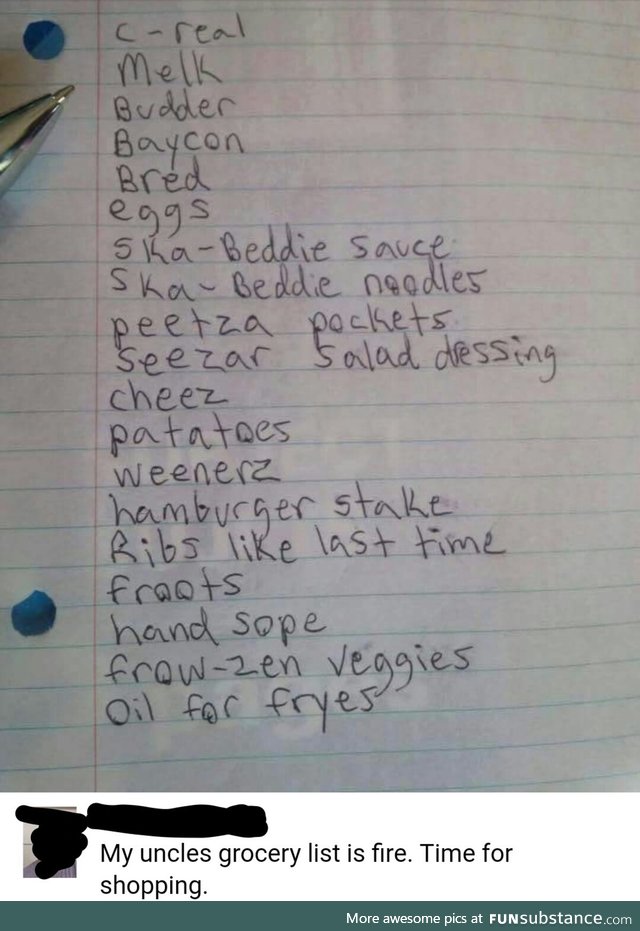 C-real
Melk
Budder
Baycon
Bred
eggs
Ska-Beddie sauce
Ska-Beddie noodles
peetza pockets
Seezar salad dressing
cheez
patatoes
weenerz
hamburger stake
Ribs like last time
froots
hand sope
frow-zen veggies
Oil for fryes
My uncles grocery list is fire. Time for
shopping.
More awesome pics at FUNsubstance.com